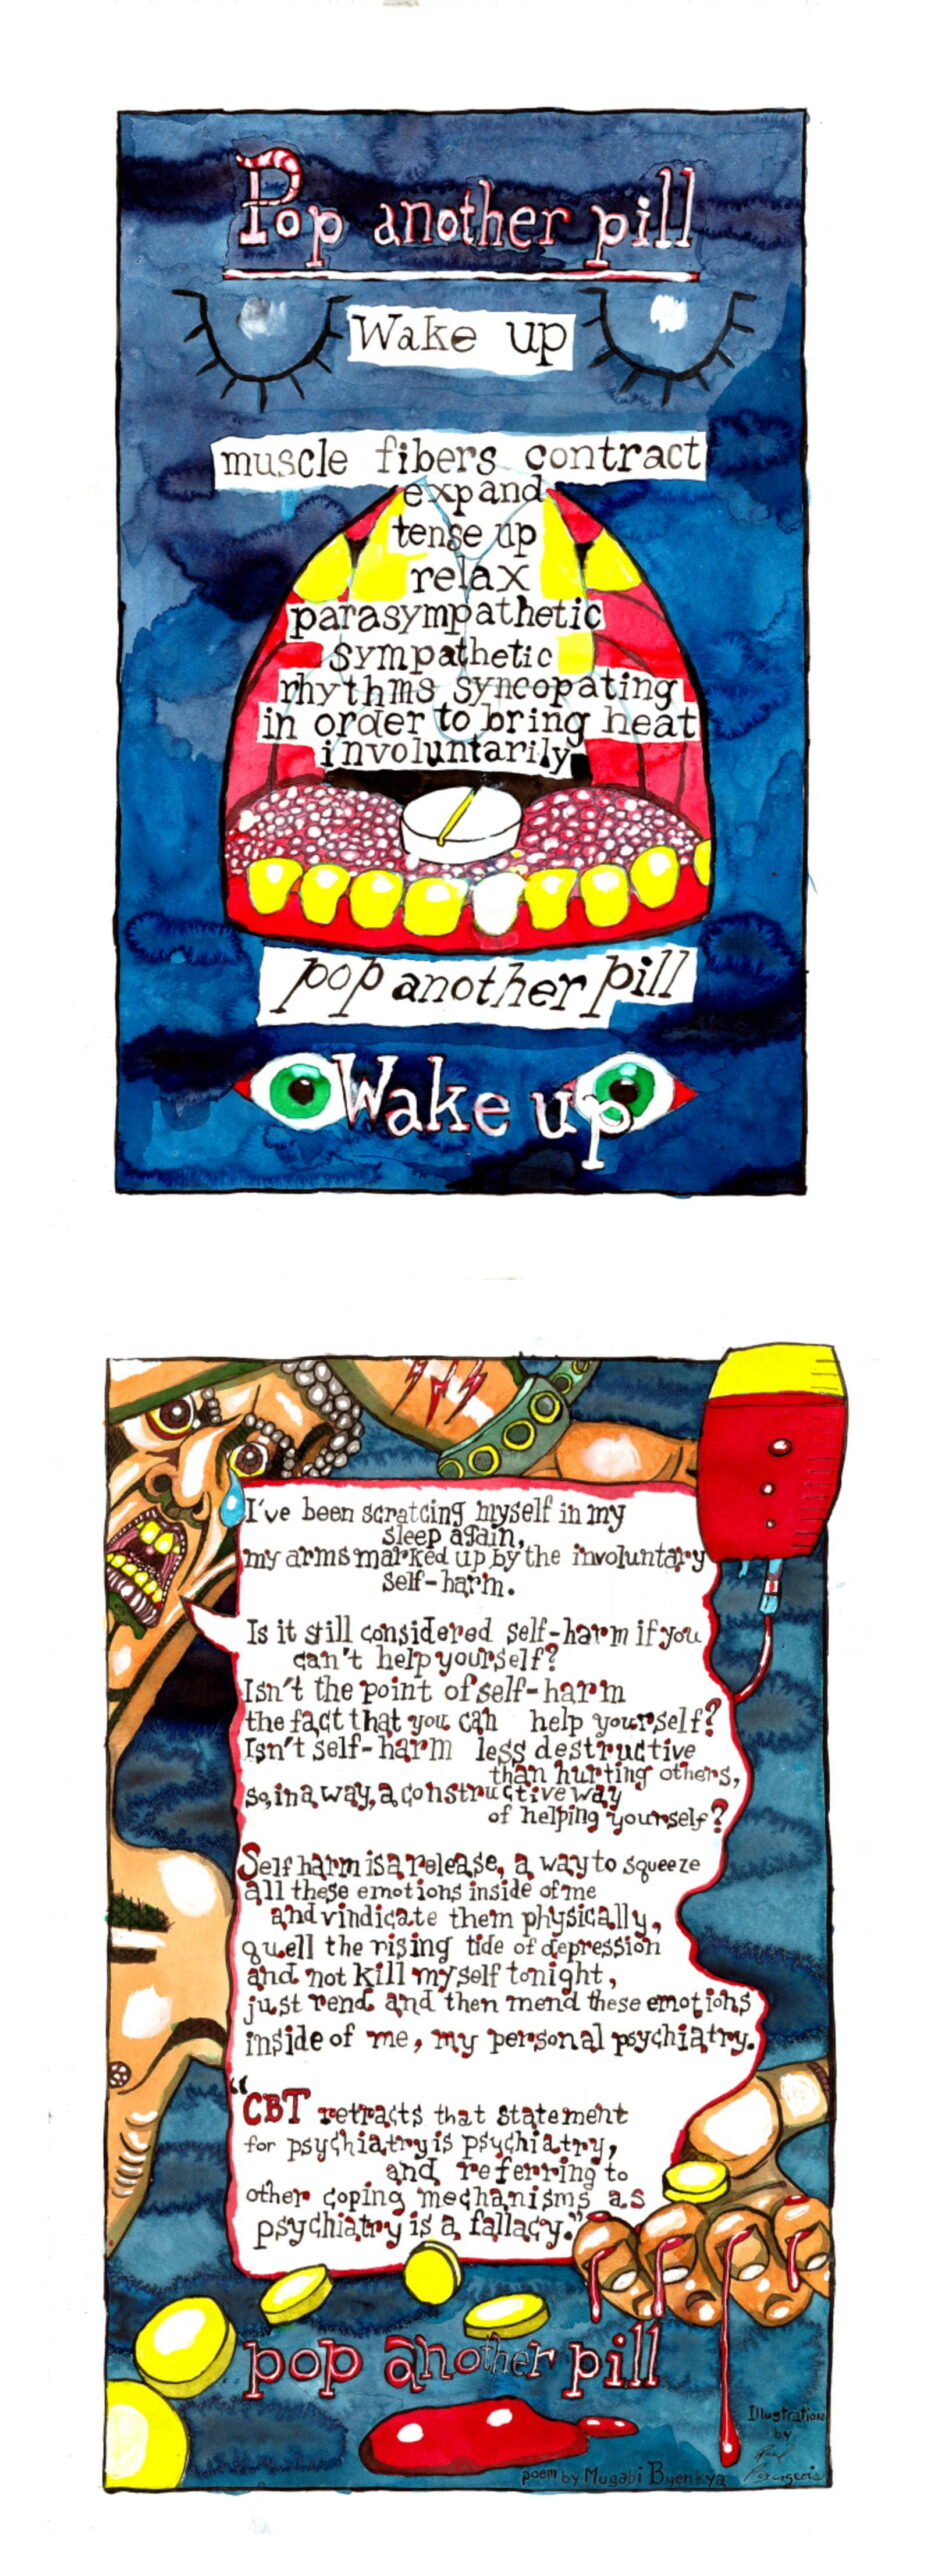 Pop another pill
Wake up
muscle fibers contract
expand
tense up
relax
parasympathetic
sympathetic
rhythms syncopating
in order to bring heat
involuntarily
pop another pill
Wake up
I've been scratcing myself in my
sleep again,
my arms marked up by the involuntary
self-harm.
Is it still considered self-harm if you
can't help yourself?
Isn't the point of self-harm
the fact that you can help yourself?
Isn't self-harm less destructive
than hurting others,
so, in a way, a constructive way
of helping yourself?
Self harm is a release, a way to squeeze
all these emotions inside of me
and vindicate them physically,
quell the rising tide of depression
and not kill myself tonight,
just rend and then mend these emotions
inside of me, my personal psychiatry.
"CBT retracts that statement
for psychiatry is psychiatry,
and referring to
other coping mechanisms as
psychiatry is a fallacy."
pop another pill
Illustration
by
poem by Mugabi Byenkya